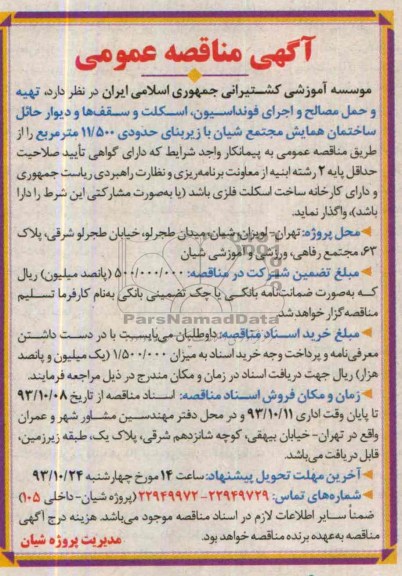 آگهی مناقصه عمومی
موسسه آموزشی کشتیرانی جمهوری اسلامی ایران در نظر دارد، تهیه
و حمل مصالح و اجرای فونداسیون، اسکلت و سقف‌ها و دیوار حائل
ساختمان همایش مجتمع شیان با زیربنای حدودی ۱۱/۵۰۰ مترمربع را از
طریق مناقصه عمومی به پیمانکار واجد شرایط که دارای گواهی تأیید صلاحیت
حداقل پایه ۲ رشته ابنیه از معاونت برنامه‌ریزی و نظارت راهبردی ریاست جمهوری
و دارای کارخانه ساخت اسکلت فلزی باشد (یا به‌صورت مشارکتی این شرط را دارا
باشد)، واگذار نماید.
محل پروژه: تهران- لویزان، شیان، میدان طجرلو، خیابان طجرلو شرقی، پلاک
۶۳، مجتمع رفاهی، ورزشی و آموزشی شیان
مبلغ تضمین شرکت در مناقصه: ۵۰۰/۰۰۰/۰۰۰ (پانصد میلیون) ریال
که به‌صورت ضمانت‌نامه بانکی یا چک تضمینی بانکی به‌نام کارفرما تسلیم
مناقصه‌گزار خواهد شد.
ParsNamadData
مبلغ خرید اسناد مناقصه: داوطلبان می‌بایست با در دست داشتن
معرفی‌نامه و پرداخت وجه خرید اسناد به میزان ۱/۵۰۰/۰۰۰ (یک میلیون و پانصد
هزار) ریال جهت دریافت اسناد در زمان و مکان مندرج در ذیل مراجعه فرمایند.
زمان و مکان فروش اسناد مناقصه: اسناد مناقصه از تاریخ ۹۳/۱۰/۰۸
تا پایان وقت اداری ۹۳/۱۰/۱۱ و در محل دفتر مهندسین مشاور شهر و عمران
واقع در تهران- خیابان بیهقی، کوچه شانزدهم شرقی، پلاک یک، طبقه زیرزمین،
قابل دریافت می‌باشد.
آخرین مهلت تحویل پیشنهاد: ساعت ۱۴ مورخ چهارشنبه ۹۳/۱۰/۲۴
شماره‌های تماس: ۲۲۹۴۹۷۲۹-۲۲۹۴۹۹۷۲ (پروژه شیان- داخلی ۱۰۵)
ضمناً سایر اطلاعات لازم در اسناد مناقصه موجود می‌باشد. هزینه درج آگهی
مناقصه به‌عهده برنده مناقصه خواهد بود.
مدیریت پروژه شیان